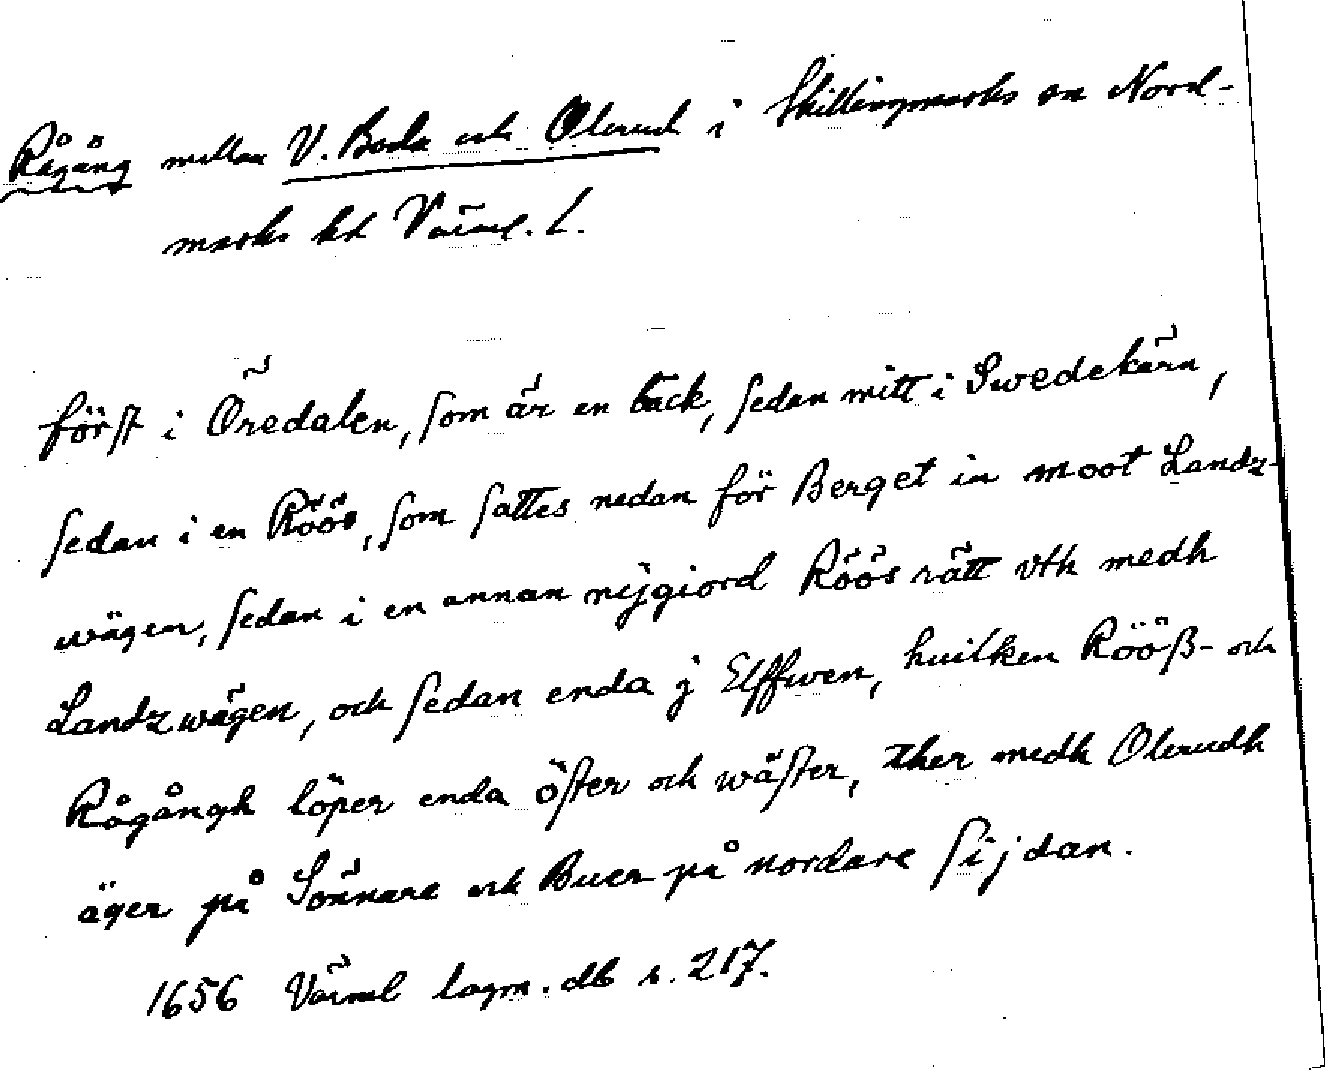 Rågång mellan V. Boda och Olerud i Skillingmarks sn Nord-
marks hd Värml. l.
först i Öredalen, som är en bäck, sedan mitt i Swedekärn,
sedan i en Röös, som sattes nedan för Berget in moot Landz-
wägen, sedan i en annan nÿgiord Röös rätt vth medh
Landzwägen, och sedan enda j Elffwen, huilken Rööß- och
Rågångh löper enda öster och wäster, ther medh Olerudh
äger på Sönnare och Buer på nordare Sijdan.
1656 Värml lagm. db s. 217.